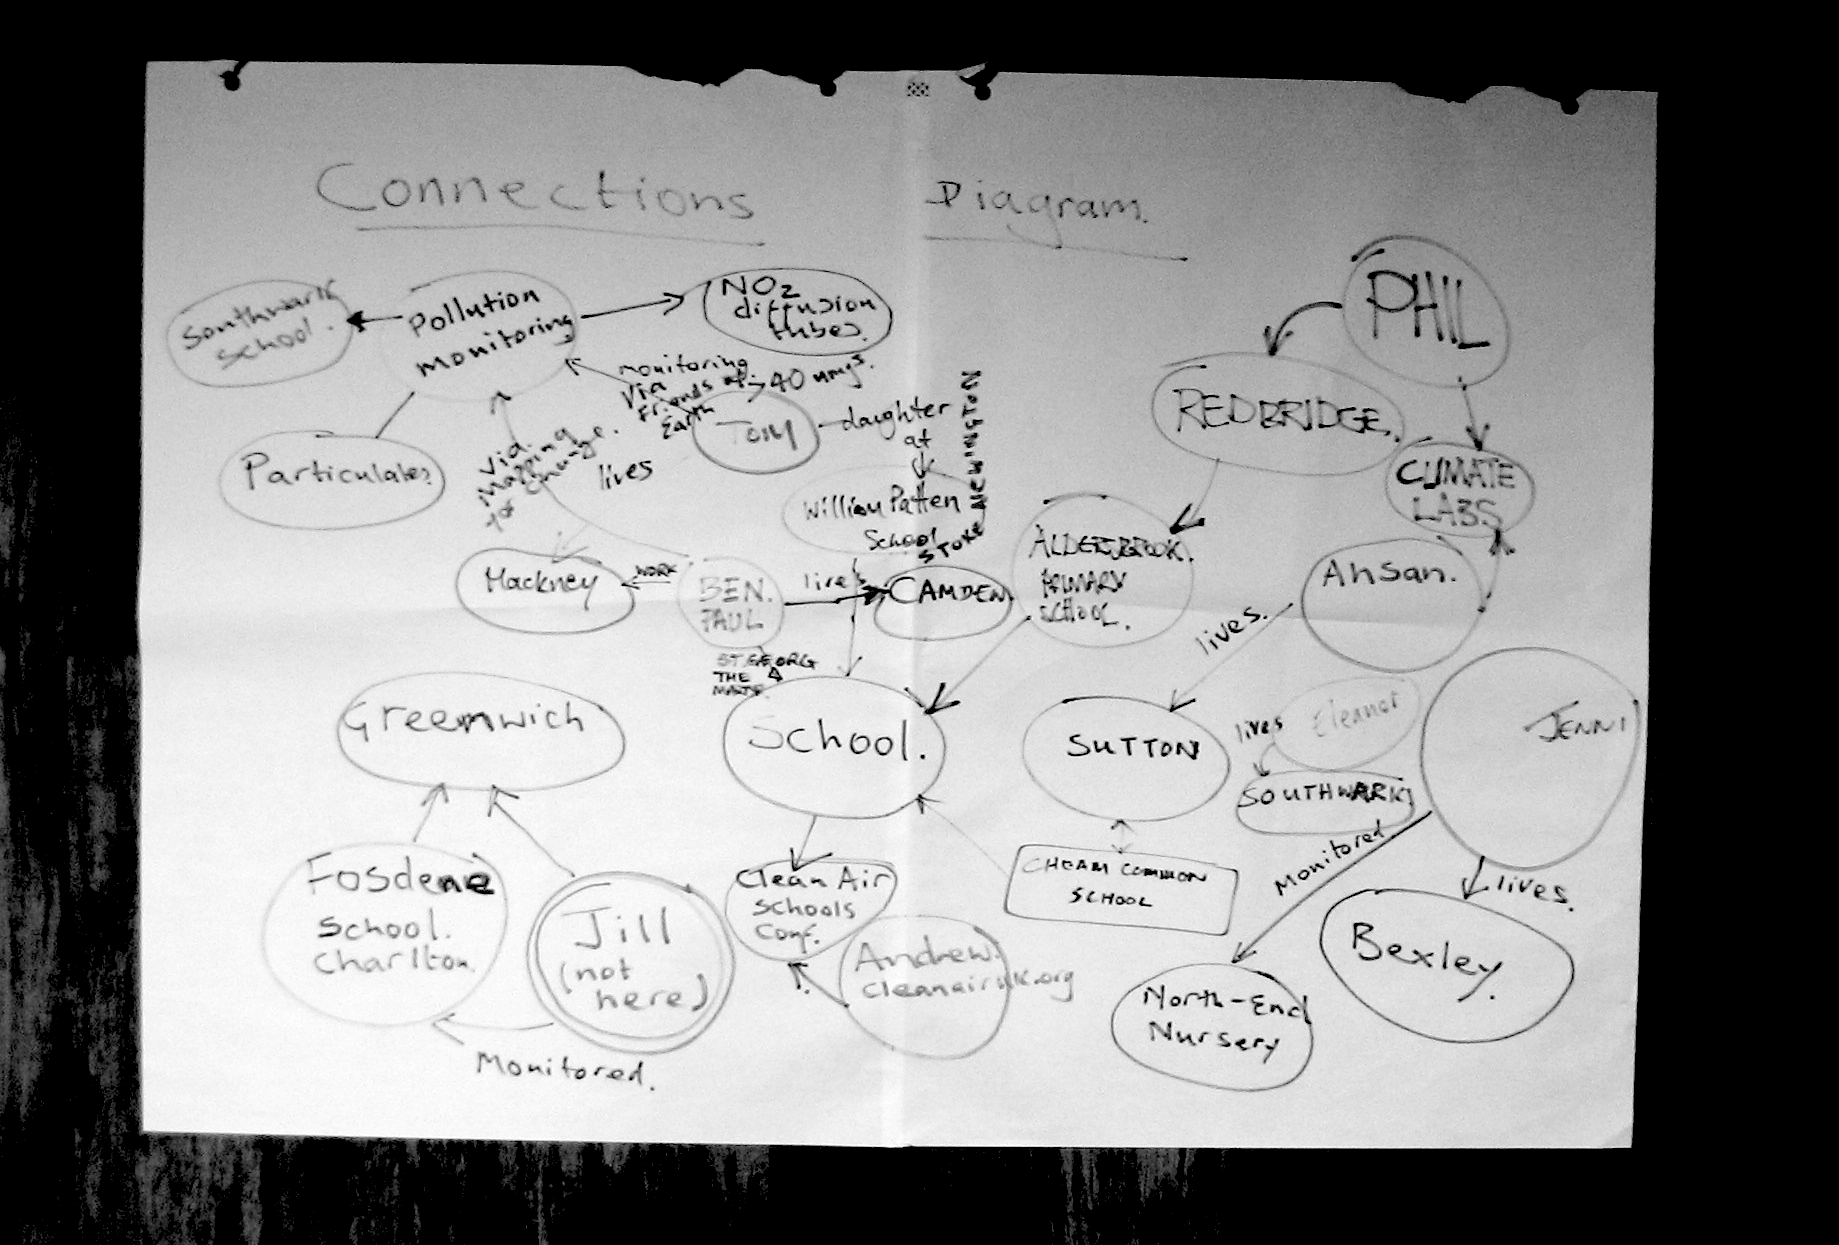 Connections Diagram.
Southwark
School.
Pollution
monitoring
NO2
diffusion
tubes.
PHIL
monitoring
via
Friends of
Earth
40
TOM
daughter
at
REDBRIDGE.
Particulates
via
Mapping
for Change.
lives
William Patten
School
STOKE NEWINGTON
CLIMATE
LABS
ALDERSBROOK.
PRIMARY
SCHOOL.
Ahsan.
Hackney
WORK
BEN.
PAUL
lives
CAMDEN
lives.
ST. GEORG
THE
Greenwich
School.
SUTTON
lives
Eleanor
JENNI
SOUTHWARK
Monitored
Fosdene
School.
Charlton.
Jill
(not
here)
Clean Air
Schools
Conf.
CHEAM COMMON
SCHOOL
lives.
Andrew.
cleanairuk.org
Bexley.
North-End
Nursery
Monitored.